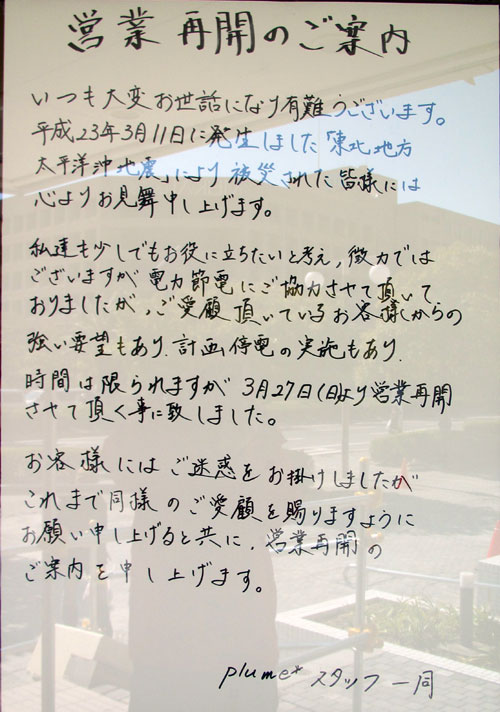 営業再開のご案内
いつも大変お世話になり有難うございます。
平成23年3月11日に発生しました「東北地方
太平洋沖地震」により被災された皆様には
心よりお見舞申し上げます。
私達も少しでもお役に立ちたいと考え,微力では
ございますが電力節電にご協力させて頂いて
おりましたが,ご愛顧頂いているお客様からの
強い要望もあり.計画停電の実施もあり.
時間は限られますが3月27日(日)より営業再開
させて頂く事に致しました。
お客様にはご迷惑をお掛けしましたが
これまで同様のご愛顧を賜りますように
お願い申し上げると共に.営業再開の
ご案内を申し上げます。
plume* スタッフ一同